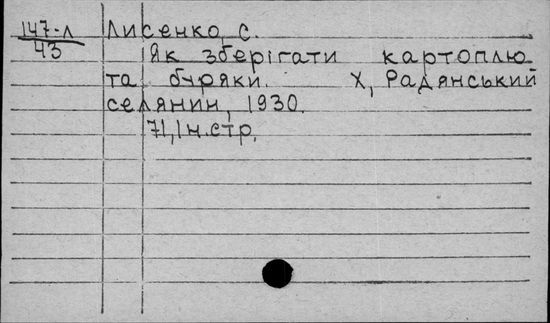 147-л Лисенко, С.
43 Як зберігати картоплю
та буряки. Х, Радянський
селянин, 1930.
71, 1 н. стр.